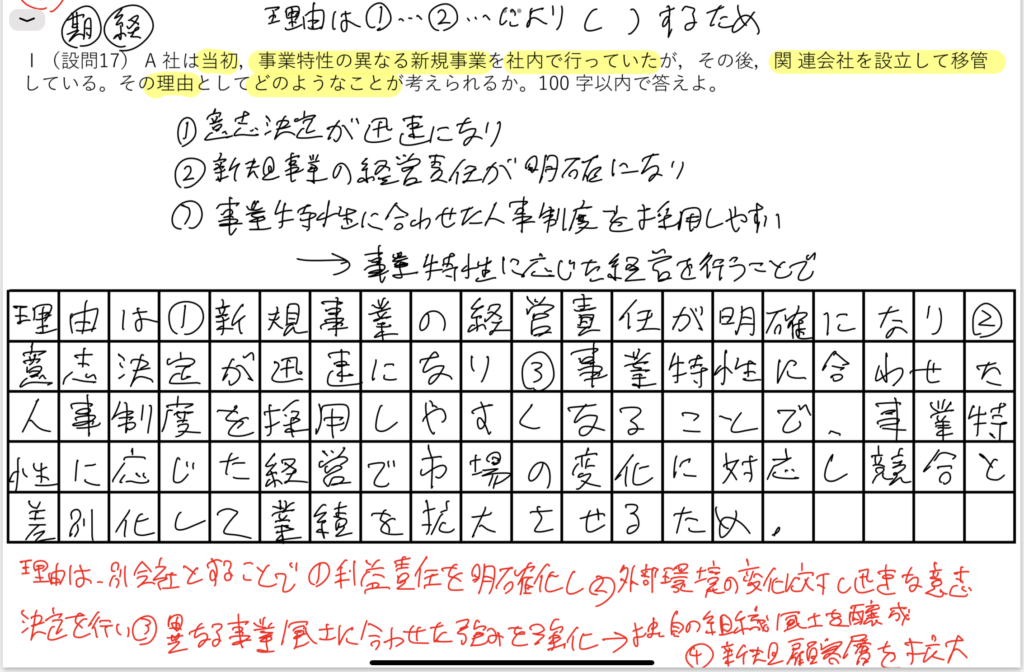 期 経 理由は①…②…により( )するため
Ⅰ（設問17） A 社は当初，事業特性の異なる新規事業を社内で行っていたが，その後，関連会社を設立して移管
している。その理由としてどのようなことが考えられるか。100 字以内で答えよ。
①意志決定が迅速になり
②新規事業の経営責任が明確になり
⑦事業特性に合わせた人事制度を採用しやすい
→事業特性に応じた経営を行うことで
理由は①新規事業の経営責任が明確になり②
意志決定が迅速になり③事業特性に合わせた
人事制度を採用しやすくなることで、事業特
性に応じた経営で市場の変化に対応し競合と
差別化して業績を拡大させるため。
理由は、別会社とすることで①利益責任を明確化し②外部環境の変化に対し迅速な意志
決定を行い③異なる事業風土に合わせた強みを強化→独自の組織風土を醸成
④新規顧客層を拡大